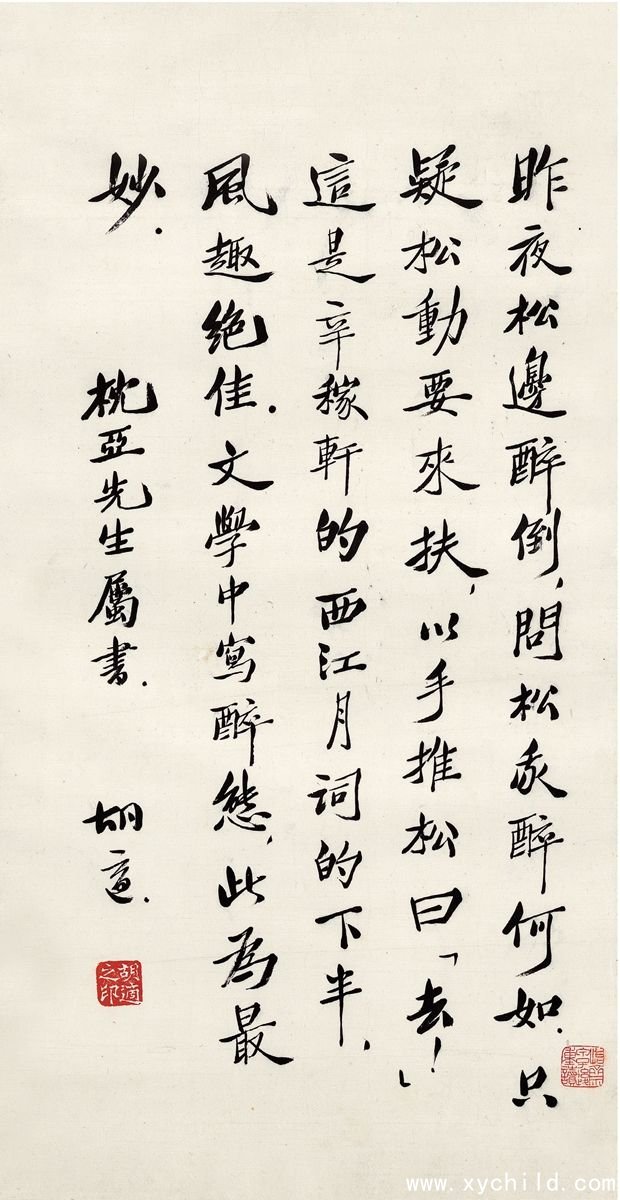 昨夜松邊醉倒，問松我醉何如．只
疑松動要來扶，以手推松曰「去！」
這是辛稼軒的西江月詞的下半，
風趣絕佳．文學中寫醉態，此為最
妙．
枕亞先生屬書．
胡適．
胡適之印
www.xychild.com